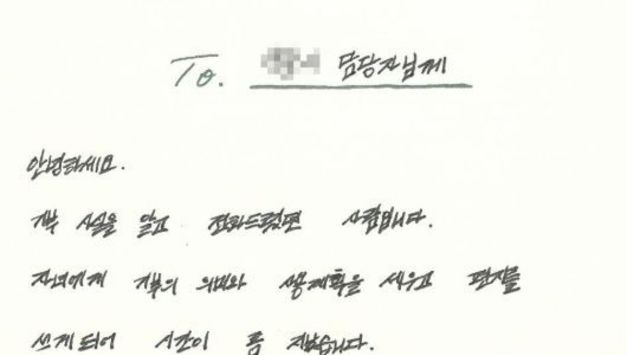 To. 담당자님께
안녕하세요.
기부 사실을 알고 전화드렸던 사람입니다.
자녀에게 기부의 의미와 사용계획을 세우고 편지를
쓰게되어 시간이 좀 지났습니다.